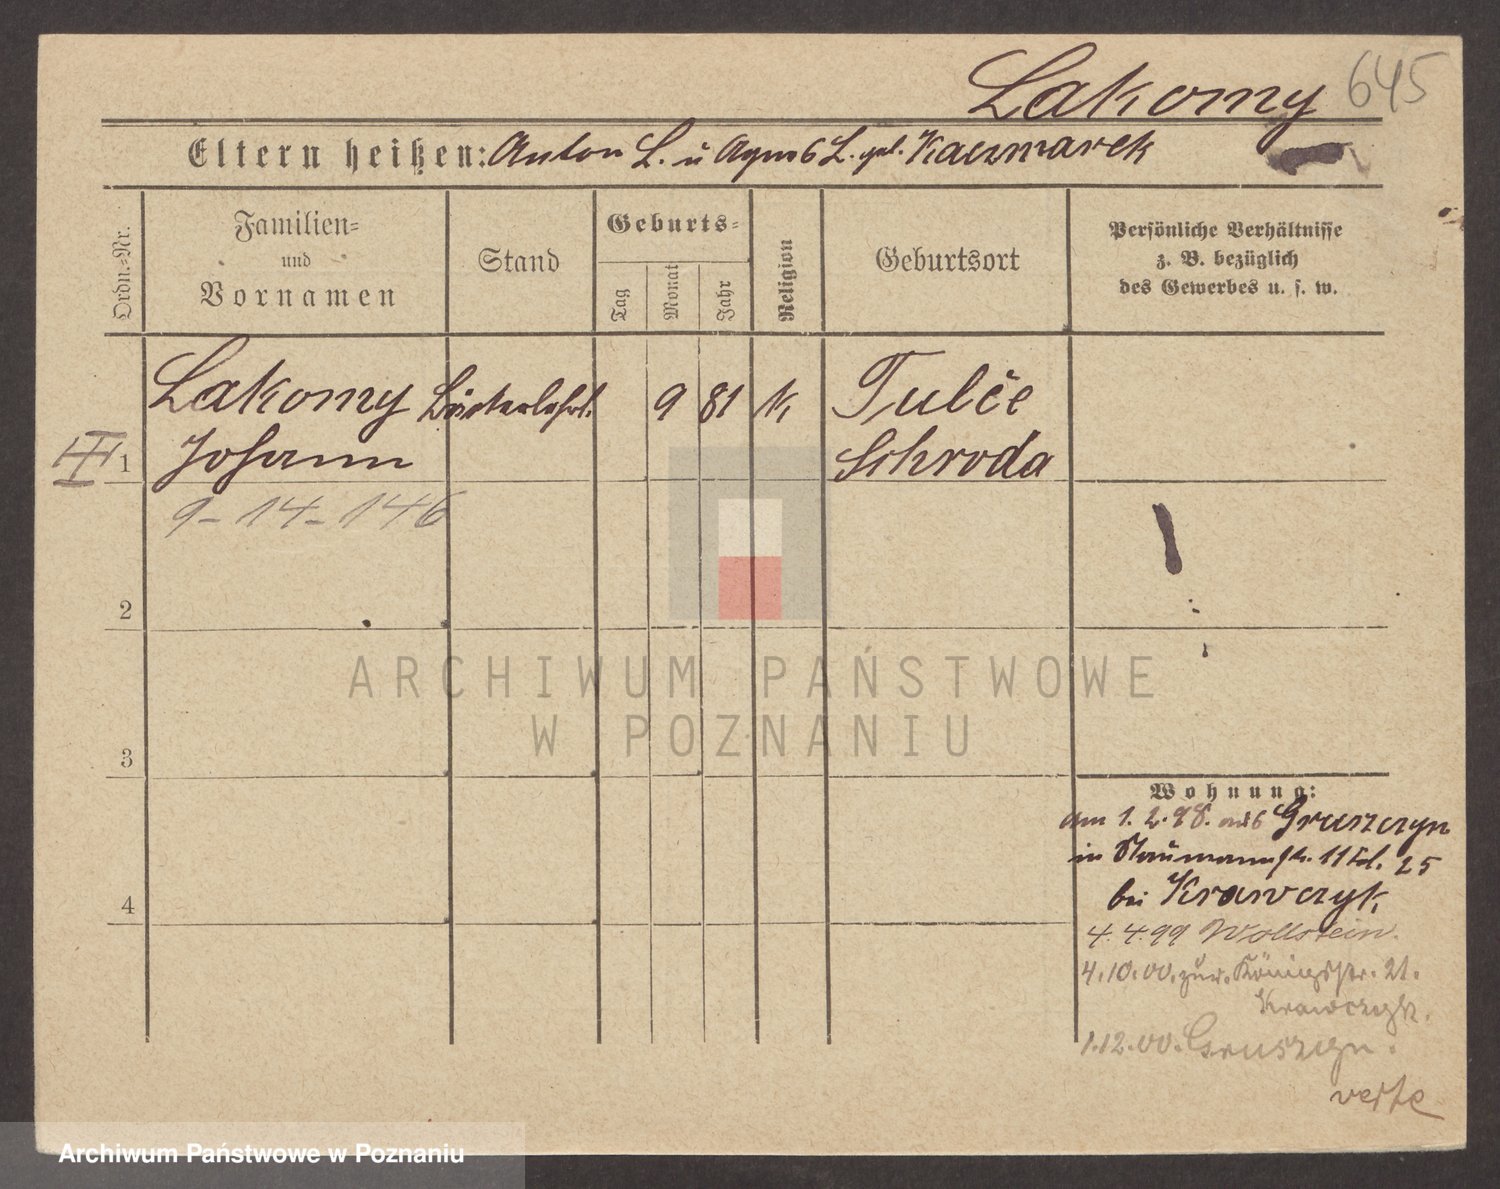 Lakomy 645
Eltern heißen: Anton L. u Agnes L. geb. Kaczmarek
Ordn.-Nr.
Familien-
und
Vornamen
Stand
Geburts-
Tag
Monat
Jahr
Religion
Geburtsort
Persönliche Verhältnisse
z. B. bezüglich
des Gewerbes u. s. w.
III 1
Lakomy Johann
9-14-146
9 81 k.
Tulce
Schroda
2
3
4
Wohnung:
am 1. 2. 98. aus Gruszczyn
in Naumannstr. 11 bei Krawczyk
4.4.99 Wollstein.
4.10.00. zur. Königsstr. 21.
Krawczyk.
1.12.00. Gruszczyn.
verte
ARCHIWUM PAŃSTWOWE
W POZNANIU
Archiwum Państwowe w Poznaniu